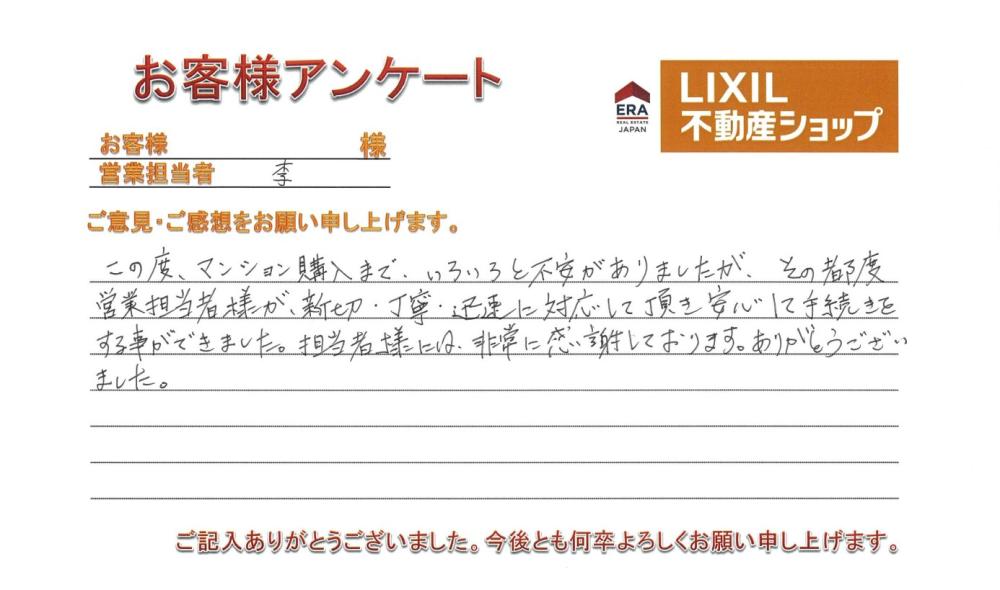 お客様アンケート
ERA
REAL ESTATE
JAPAN
LIXIL
不動産ショップ
お客様 様
営業担当者 李
ご意見・ご感想をお願い申し上げます。
この度、マンション購入まで、いろいろと不安がありましたが、その都度
営業担当者様が、新切・丁寧・迅速に対応して頂き安心して手続きを
する事ができました。担当者様には、非常に感謝しております。ありがとうござい
ました。
ご記入ありがとうございました。今後とも何卒よろしくお願い申し上げます。